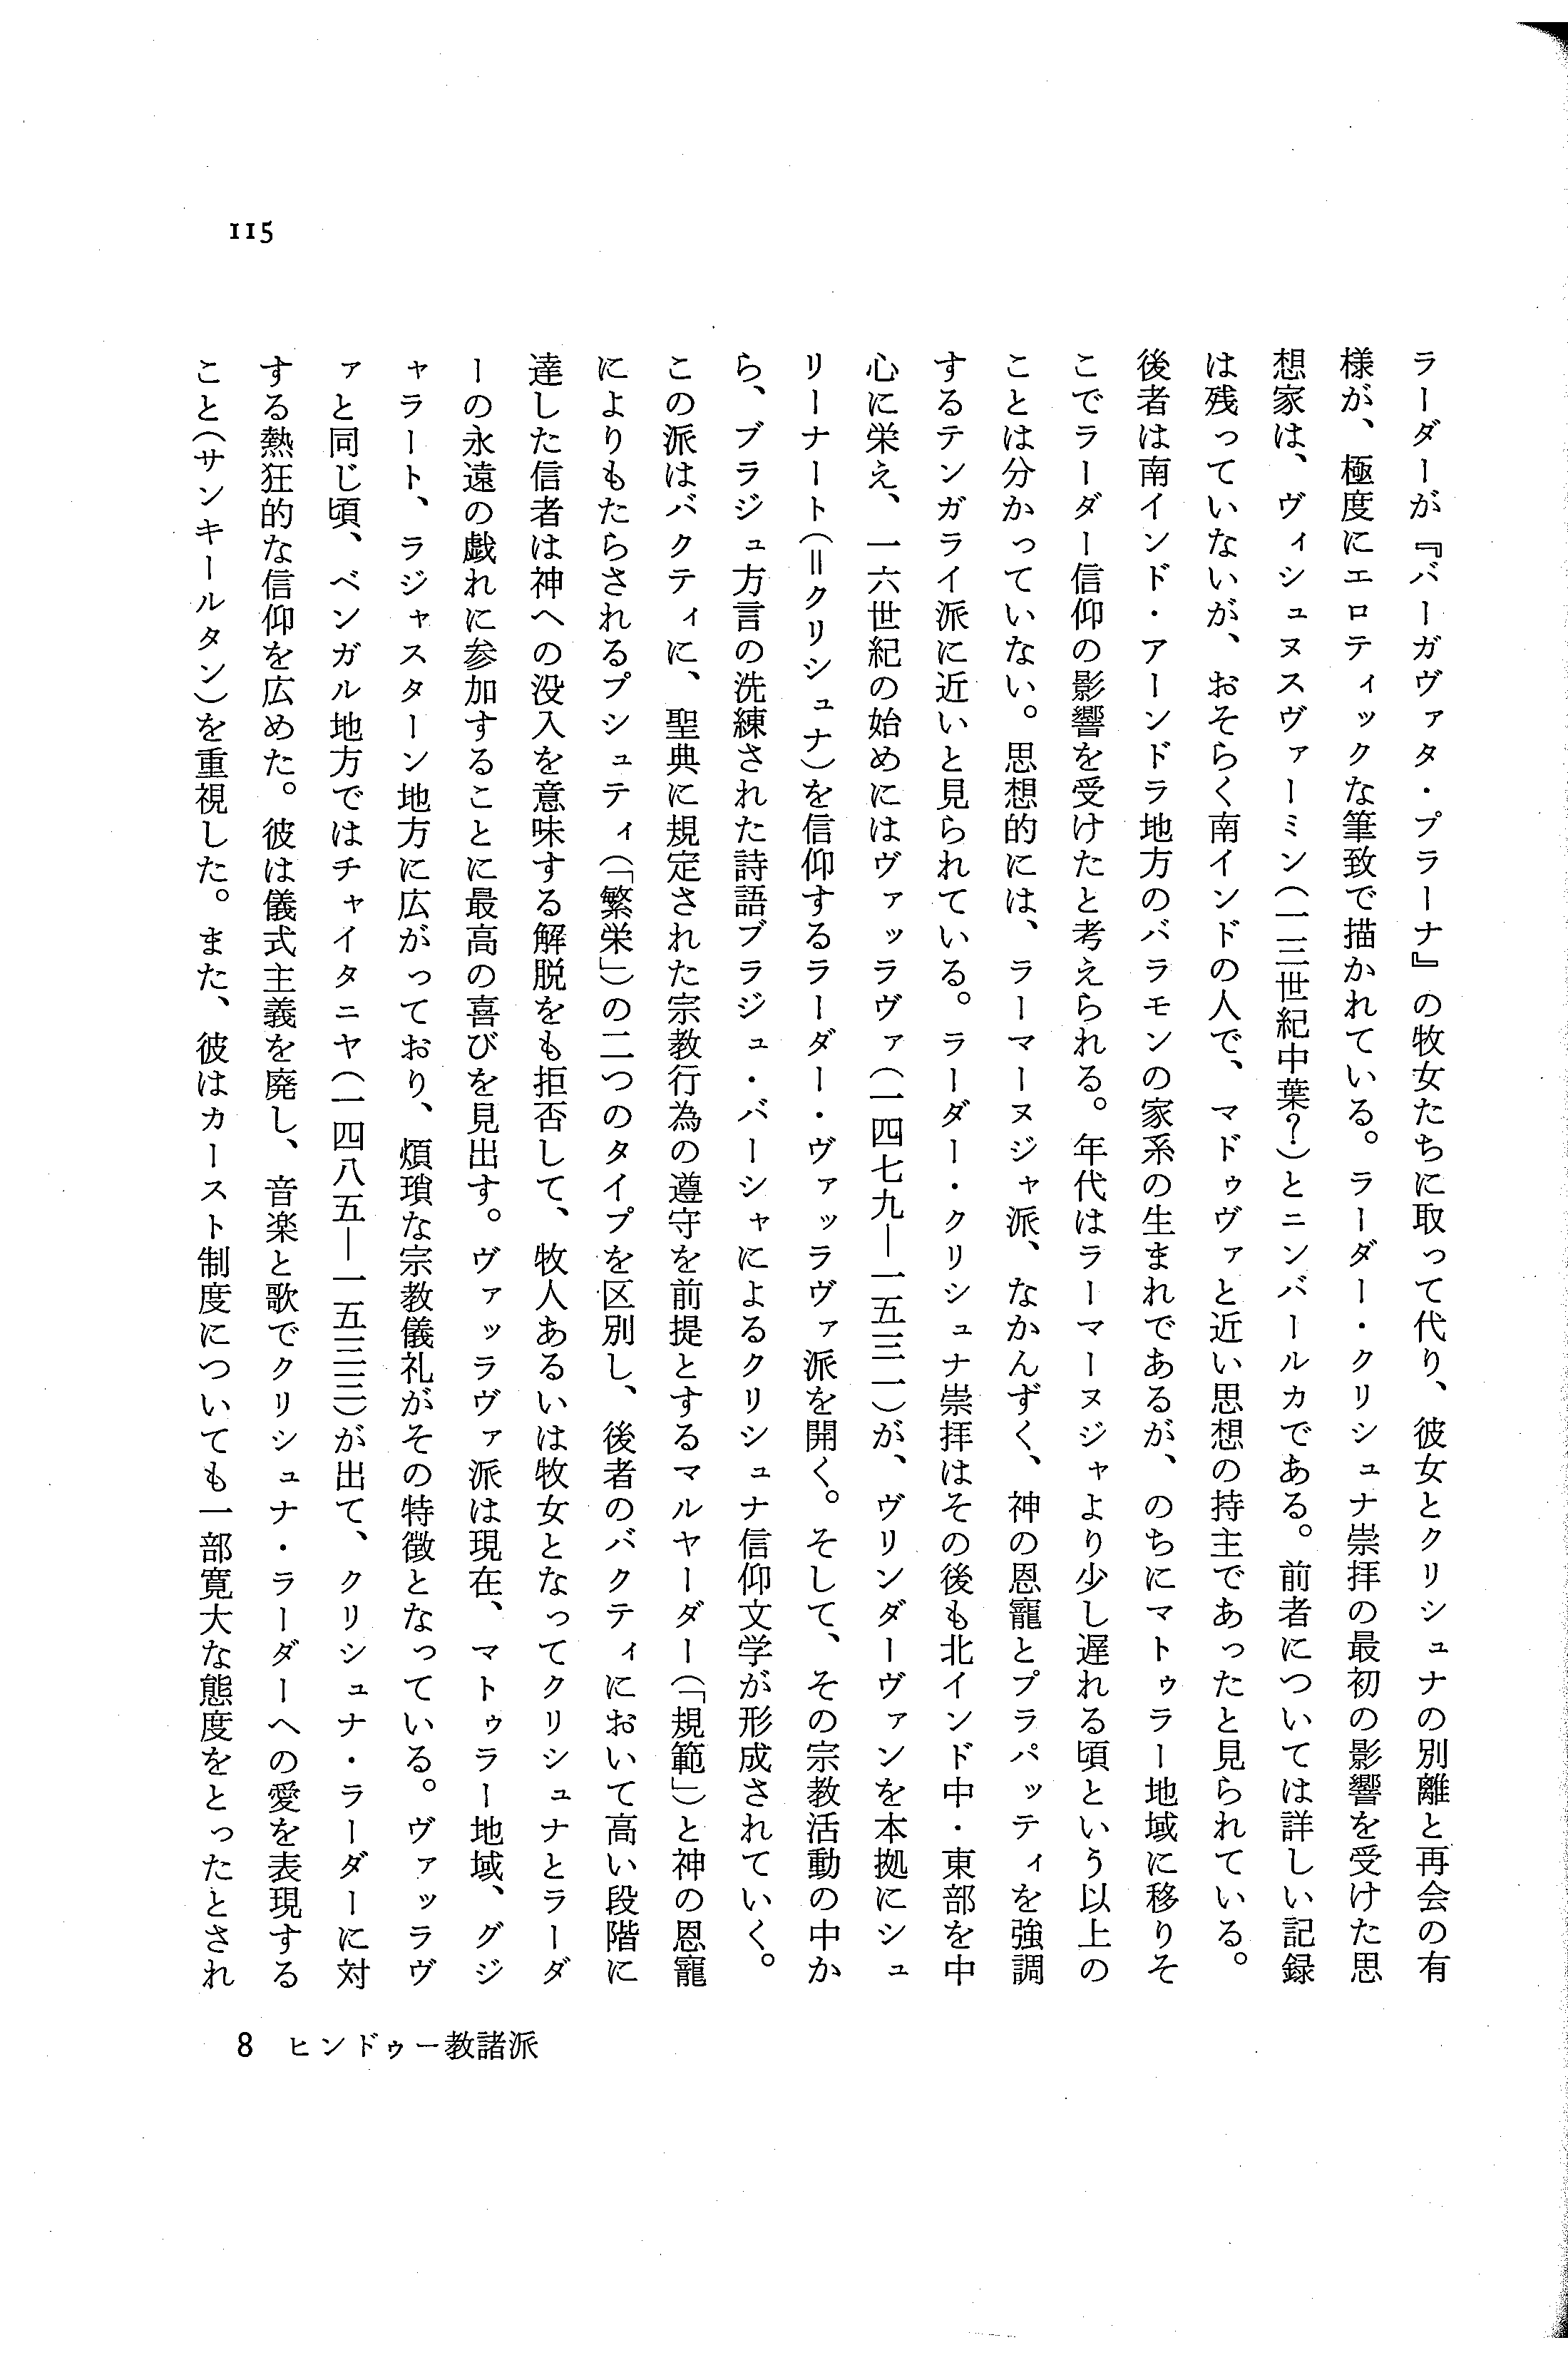 115
ラーダーが『バーガヴァタ・プラーナ』の牧女たちに取って代り、彼女とクリシュナの別離と再会の有
様が、極度にエロティックな筆致で描かれている。ラーダー・クリシュナ崇拝の最初の影響を受けた思
想家は、ヴィシュヌスヴァーミン(一三世紀中葉?)とニンバールカである。前者については詳しい記録
は残っていないが、おそらく南インドの人で、マドゥヴァと近い思想の持主であったと見られている。
後者は南インド・アーンドラ地方のバラモンの家系の生まれであるが、のちにマトゥラー地域に移りそ
こでラーダー信仰の影響を受けたと考えられる。年代はラーマーヌジャより少し遅れる頃という以上の
ことは分かっていない。思想的には、ラーマーヌジャ派、なかんずく、神の恩寵とプラパッティを強調
するテンガライ派に近いと見られている。ラーダー・クリシュナ崇拝はその後も北インド中・東部を中
心に栄え、一六世紀の始めにはヴァッラヴァ(一四七九―一五三一)が、ヴリンダーヴァンを本拠にシュ
リーナート(=クリシュナ)を信仰するラーダー・ヴァッラヴァ派を開く。そして、その宗教活動の中か
ら、ブラジュ方言の洗練された詩語ブラジュ・バーシャによるクリシュナ信仰文学が形成されていく。
この派はバクティに、聖典に規定された宗教行為の遵守を前提とするマルヤーダー(「規範」)と神の恩寵
によりもたらされるプシュティ(「繁栄」)の二つのタイプを区別し、後者のバクティにおいて高い段階に
達した信者は神への没入を意味する解脱をも拒否して、牧人あるいは牧女となってクリシュナとラーダ
ーの永遠の戯れに参加することに最高の喜びを見出す。ヴァッラヴァ派は現在、マトゥラー地域、グジ
ャラート、ラジャスターン地方に広がっており、煩瑣な宗教儀礼がその特徴となっている。ヴァッラヴ
ァと同じ頃、ベンガル地方ではチャイタニヤ(一四八五―一五三三)が出て、クリシュナ・ラーダーに対
する熱狂的な信仰を広めた。彼は儀式主義を廃し、音楽と歌でクリシュナ・ラーダーへの愛を表現する
こと(サンキールタン)を重視した。また、彼はカースト制度についても一部寛大な態度をとったとされ
8 ヒンドゥー教諸派